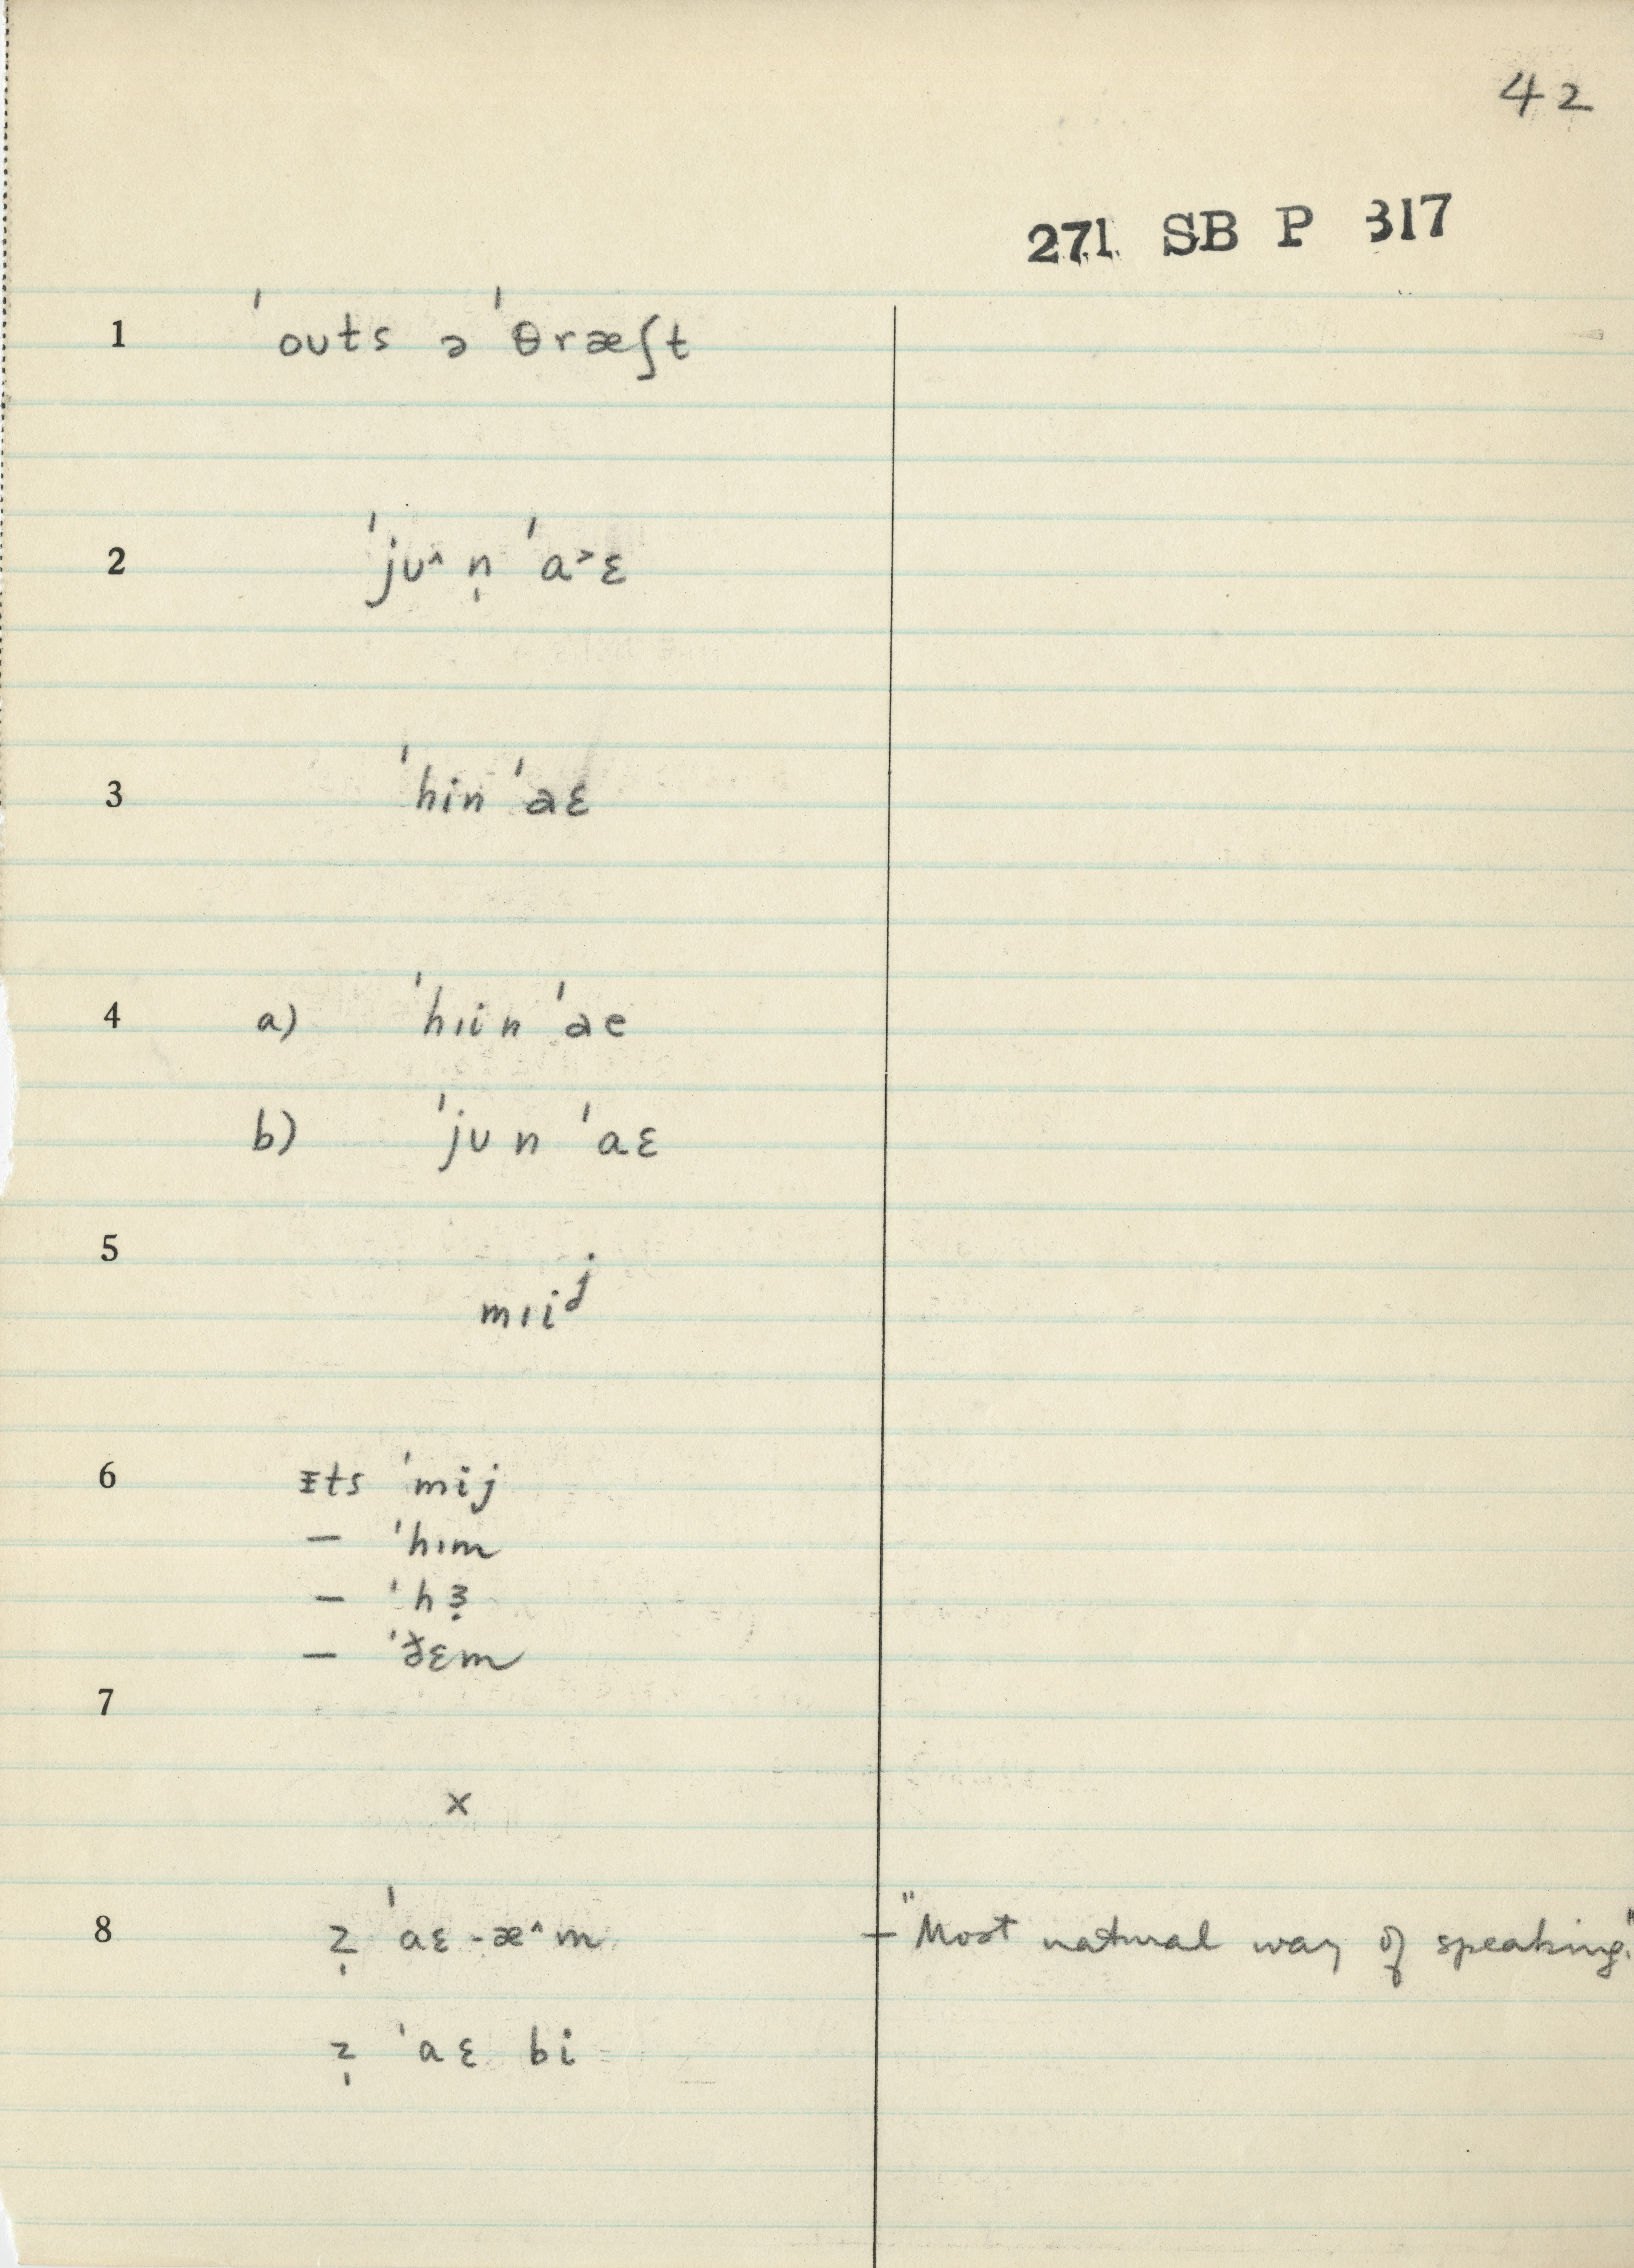 42
271 SB P 317
1 ˈoʊts ə ˈθræʃt
2 ˈjʊ^ n̩ ˈa˃ɛ
3 ˈhin ˈaɛ
4 a) ˈhɪin ˈae
b) ˈjʊn ˈaɛ
5
mɪiʲ
6 ɪts ˈmij
— ˈhɪm
— ˈhɜ̣
— ˈðɛm
7
x
8 z̩ ˈaɛ-æ^m – "Most natural way of speaking."
z̩ ˈaɛ bi